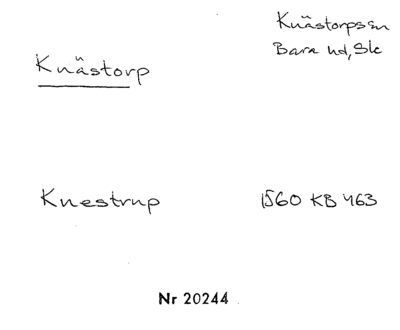 Knästorpssn
Bara hd, Sk
Knästorp
Knestrup
1560 KB 463
Nr 20244